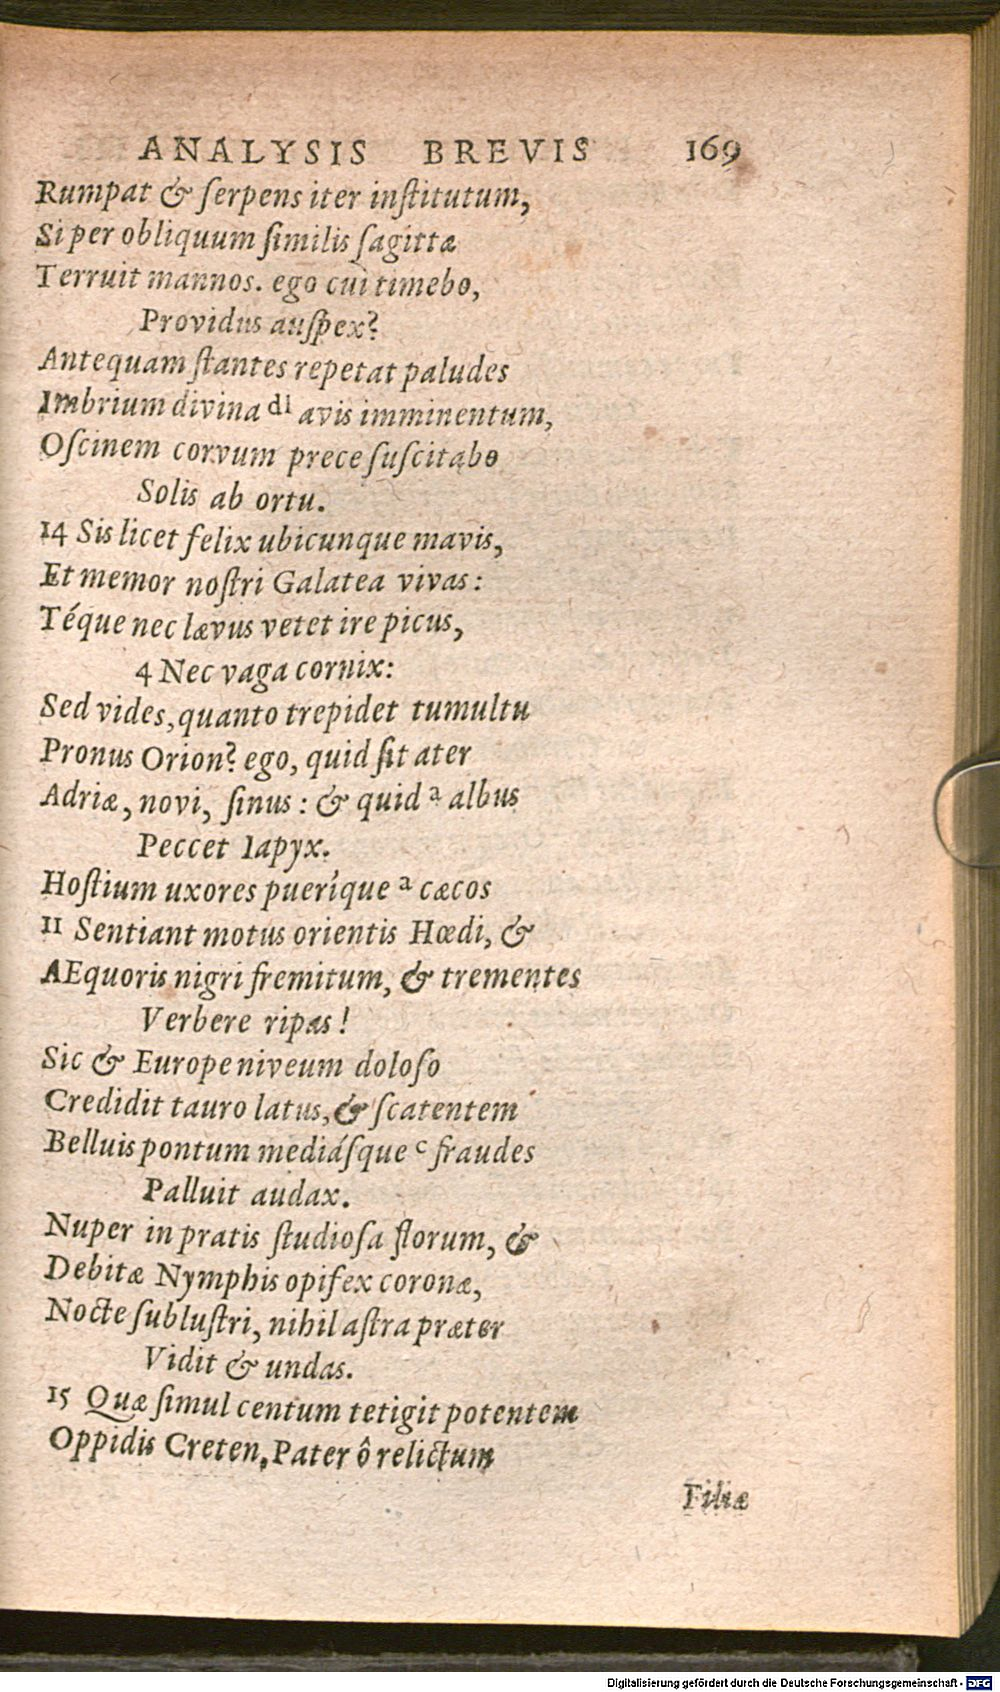 ANALYSIS BREVIS 169
Rumpat & ſerpens iter inſtitutum,
Si per obliquum ſimilis ſagittæ
Terruit mannos. ego cui timebo,
Providus auſpex?
Antequam ſtantes repetat paludes
Imbrium divina di avis imminentum,
Oſcinem corvum prece ſuſcitabo
Solis ab ortu.
14 Sis licet felix ubicunque mavis,
Et memor noſtri Galatea vivas:
Téque nec lævus vetet ire picus,
4 Nec vaga cornix:
Sed vides, quanto trepidet tumultu
Pronus Orion? ego, quid ſit ater
Adriæ, novi, ſinus: & quid a albus
Peccet Iapyx.
Hoſtium uxores pueríque a cæcos
11 Sentiant motus orientis Hœdi, &
AEquoris nigri fremitum, & trementes
Verbere ripas!
Sic & Europe niveum doloſo
Credidit tauro latus, & ſcatentem
Belluis pontum mediáſque c fraudes
Palluit audax.
Nuper in pratis ſtudioſa florum, &
Debitæ Nymphis opifex coronæ,
Nocte ſubluſtri, nihil aſtra præter
Vidit & undas.
15 Quæ ſimul centum tetigit potentem
Oppidis Creten, Pater ô relictum
Filiæ
Digitalisierung gefördert durch die Deutsche Forschungsgemeinschaft - DFG